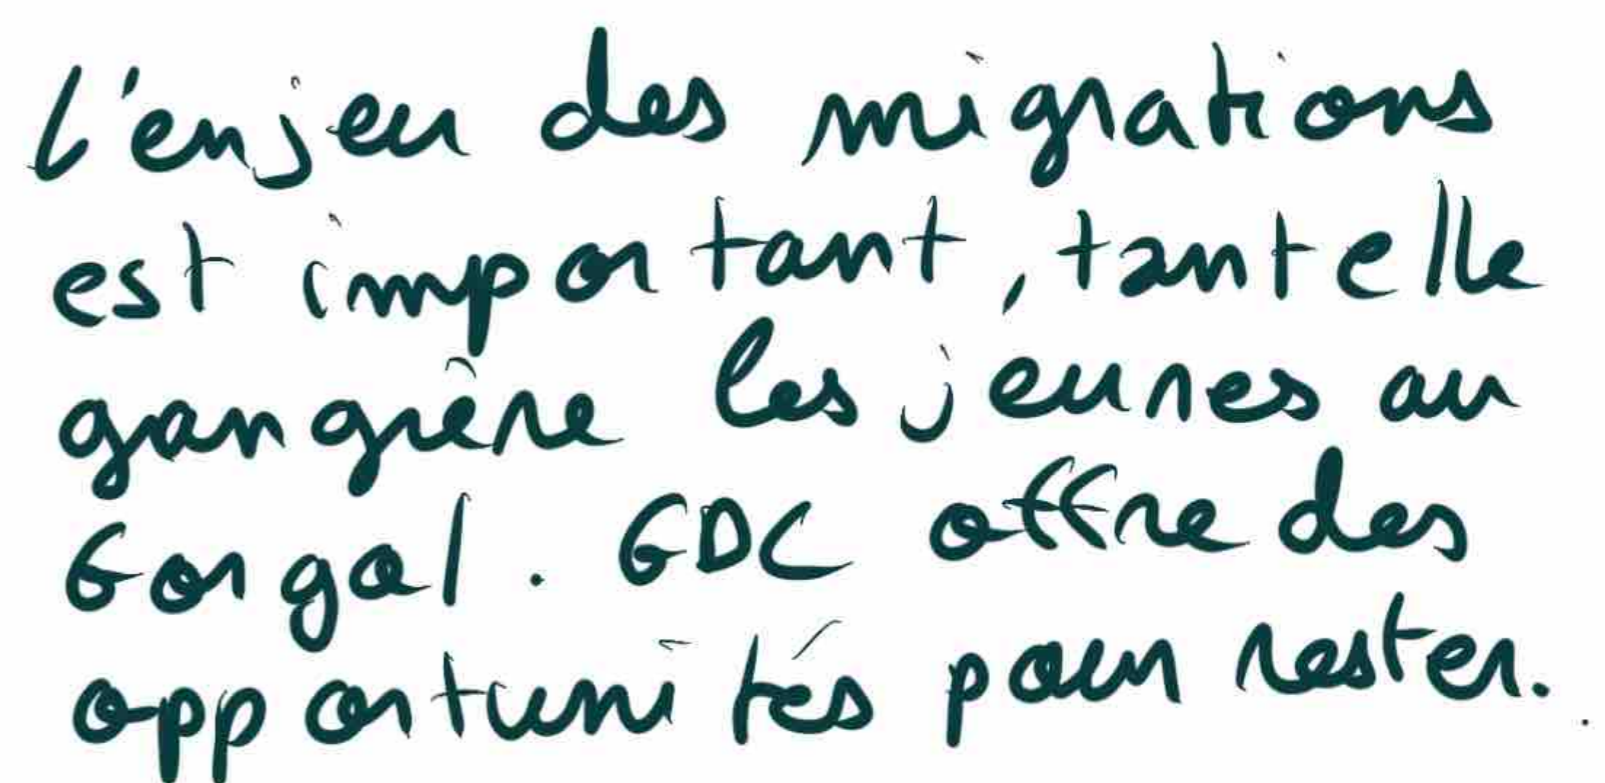 l'enjeu des migrations
est important, tant elle
gangrène les jeunes au
Gorgol. GDC offre des
opportunités pour rester.